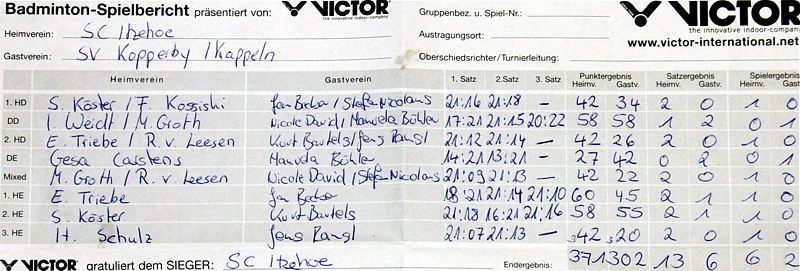 Badminton-Spielbericht präsentiert von: VICTOR the innovative indoor-company Gruppenbez. u. Spiel-Nr.: VICTOR the innovative indoor-company
Heimverein: SC Itzehoe Austragungsort: www.victor-international.net
Gastverein: SV Kopperby / Kappeln Oberschiedsrichter/Turnierleitung:
Heimverein Gastverein 1. Satz 2. Satz 3. Satz Punktergebnis Heimv. Gastv. Satzergebnis Heimv. Gastv. Spielergebnis Heimv. Gastv.
1. HD S. Köster / F. Kossiski Jan Bocher / Stefan Nicolaus 21:16 21:18 — 42 34 2 0 1 0
DD I. Weidt / M. Groth Nicole David / Manuela Böhler 17:21 21:15 20:22 58 58 1 2 0 1
2. HD E. Triebe / R. v. Leesen Kurt Bartels / Jens Rangl 21:12 21:14 — 42 26 2 0 1 0
DE Gesa Carstens Manuela Böhler 14:21 13:21 — 27 42 0 2 0 1
Mixed M. Groth / R. v. Leesen Nicole David / Stefan Nicolaus 21:09 21:13 — 42 22 2 0 1 0
1. HE E. Triebe Jan Bocher 18:21 21:14 21:10 60 45 2 1 1 0
2. HE S. Köster Kurt Bartels 21:18 16:21 21:16 58 55 2 1 1 0
3. HE H. Schulz Jens Rangl 21:07 21:13 — 42 20 2 0 1 0
VICTOR gratuliert dem SIEGER: SC Itzehoe Endergebnis: 371 302 13 6 6 2